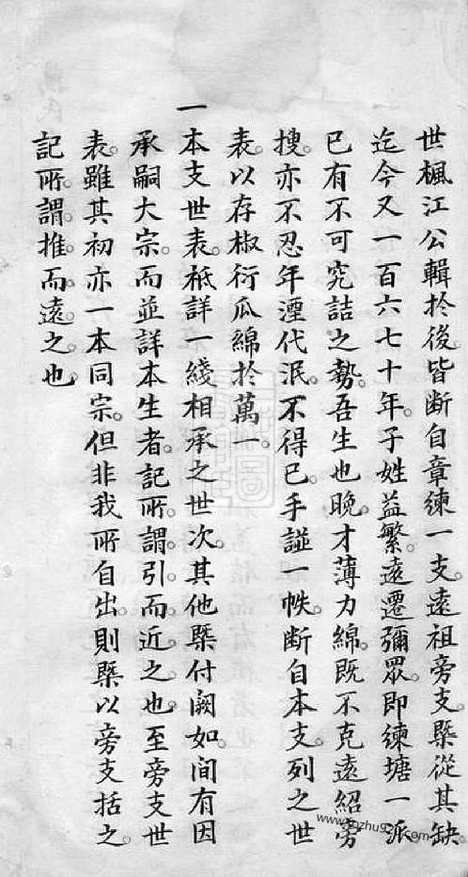 世楓江公輯於後皆斷自章練一支遠祖旁支槩從其缺
迄今又一百六七十年子姓益繁遠遷彌眾即練塘一派
已有不可究詰之勢吾生也晚才薄力綿既不克遠紹旁
搜亦不忍年湮代泯不得已手謚一帙斷自本支列之世
表以存椒衍瓜綿於萬一
一本支世表祇詳一綫相承之世次其他槩付闕如間有因
承嗣大宗而並詳本生者記所謂引而近之也至旁支世
表雖其初亦一本同宗但非我所自出則槩以旁支括之
記所謂推而遠之也